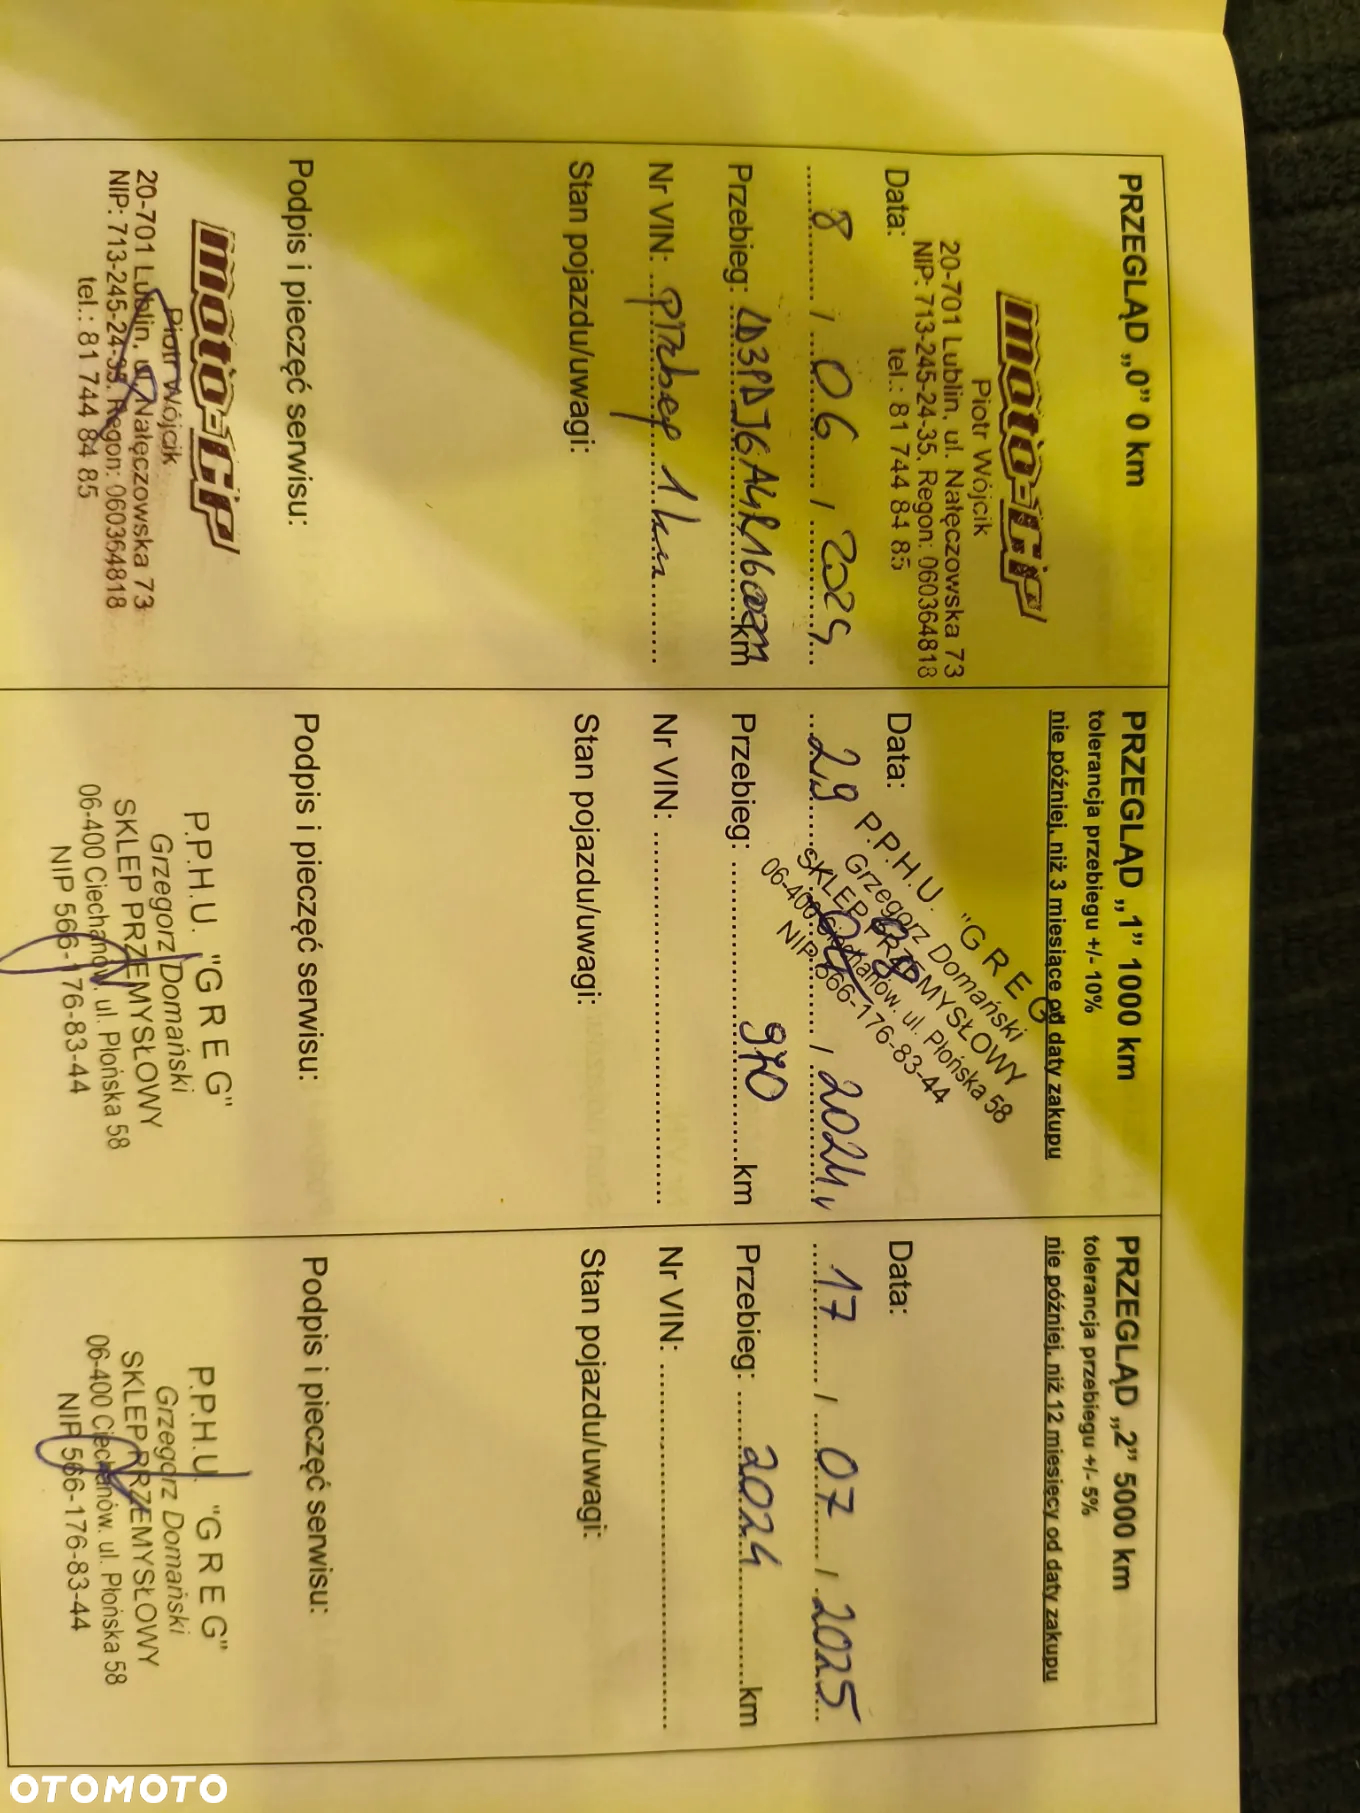 PRZEGLĄD „0” 0 km
moto-cip
Piotr Wójcik
20-701 Lublin, ul. Nałęczowska 73
NIP: 713-245-24-35, Regon: 060364818
tel.: 81 744 84 85
Data:
8 / 06 / 2024
Przebieg: km
Nr VIN: przebieg 1 km
Stan pojazdu/uwagi:
Podpis i pieczęć serwisu:
moto-cip
Piotr Wójcik
20-701 Lublin, ul. Nałęczowska 73
NIP: 713-245-24-35, Regon: 060364818
tel.: 81 744 84 85
PRZEGLĄD „1” 1000 km
tolerancja przebiegu +/- 10%
nie później, niż 3 miesiące od daty zakupu
P.P.H.U. "G R E G"
Grzegorz Domański
SKLEP PRZEMYSŁOWY
06-400 Ciechanów, ul. Płońska 58
NIP 566-176-83-44
Data:
29 / 2024
Przebieg: 970 km
Nr VIN:
Stan pojazdu/uwagi:
Podpis i pieczęć serwisu:
P.P.H.U. "G R E G"
Grzegorz Domański
SKLEP PRZEMYSŁOWY
06-400 Ciechanów, ul. Płońska 58
NIP 566-176-83-44
PRZEGLĄD „2” 5000 km
tolerancja przebiegu +/- 5%
nie później, niż 12 miesięcy od daty zakupu
Data:
17 / 07 / 2025
Przebieg: 2024 km
Nr VIN:
Stan pojazdu/uwagi:
Podpis i pieczęć serwisu:
P.P.H.U. "G R E G"
Grzegorz Domański
SKLEP PRZEMYSŁOWY
06-400 Ciechanów, ul. Płońska 58
NIP 566-176-83-44
OTOMOTO